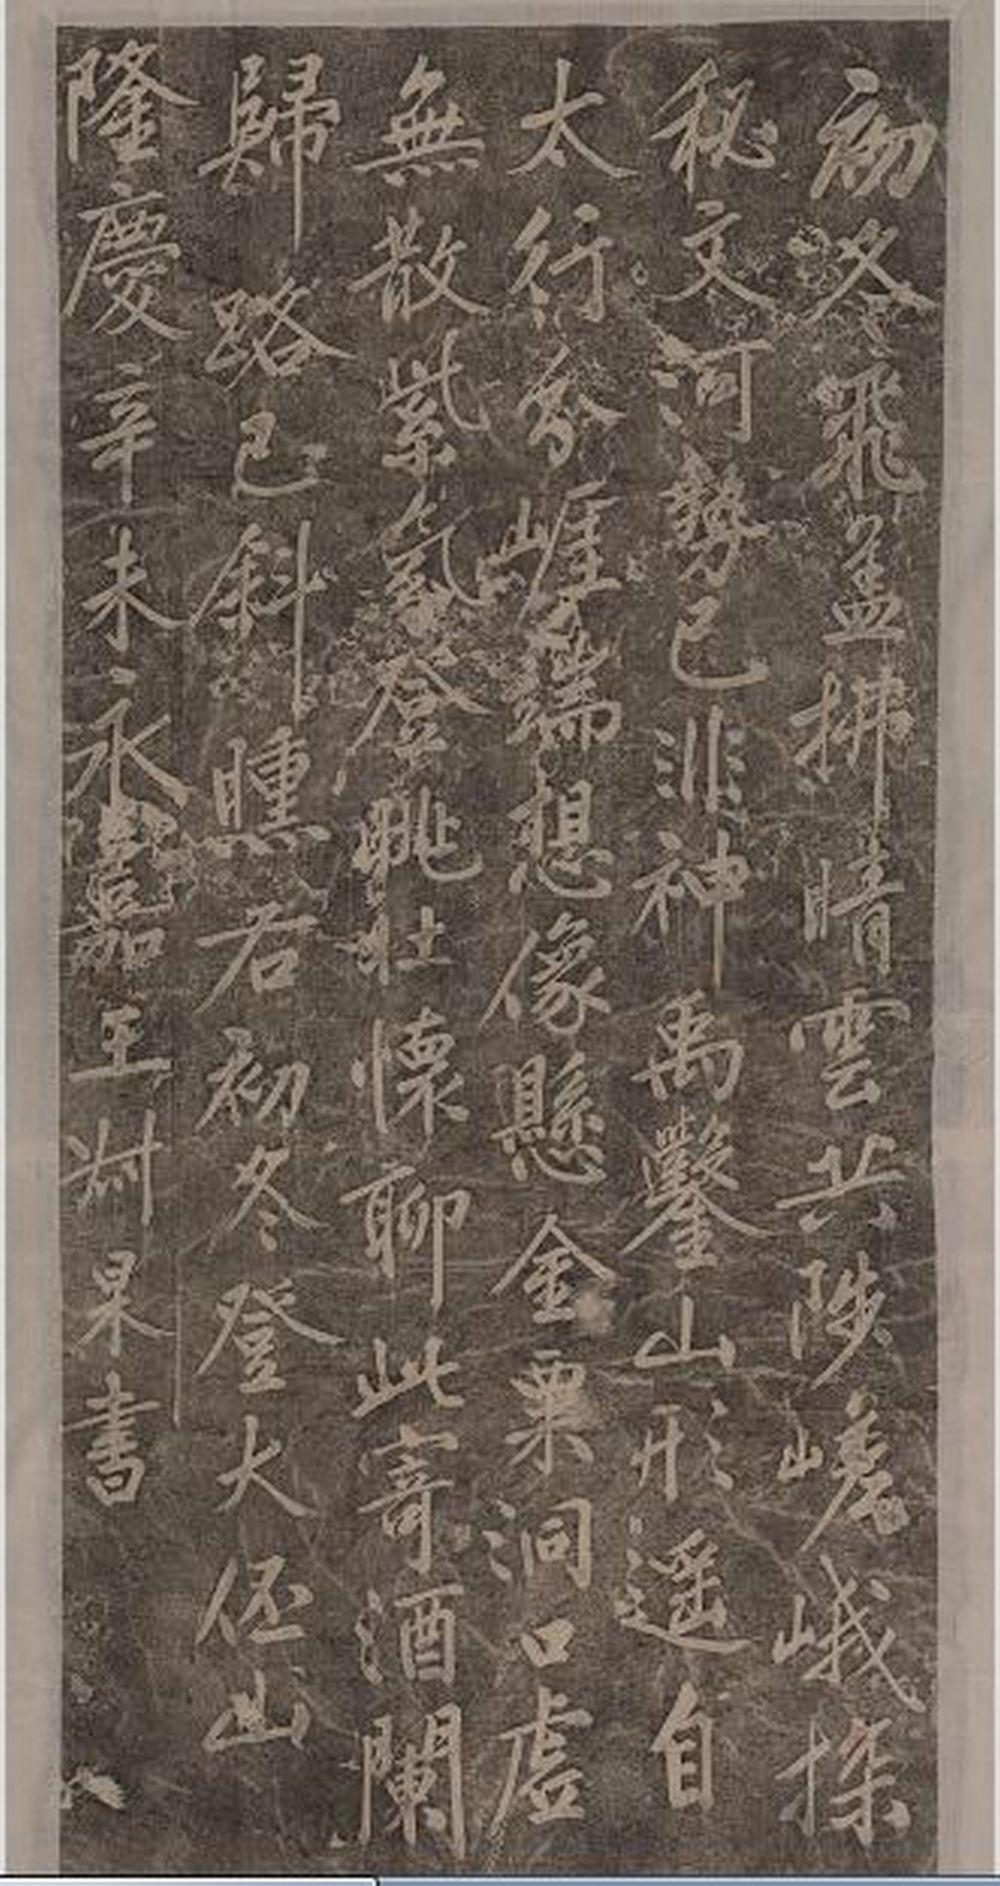 初冬飛盖拂晴雲共陟嵯峨探
秘文河勢已非神禹鑿山形遥自
太行分崕端想像懸金粟洞口虛
無散紫氣登眺壯懷聊此寄酒闌
歸路已斜曛右初冬登大伾山
隆慶辛未永嘉王叔杲書